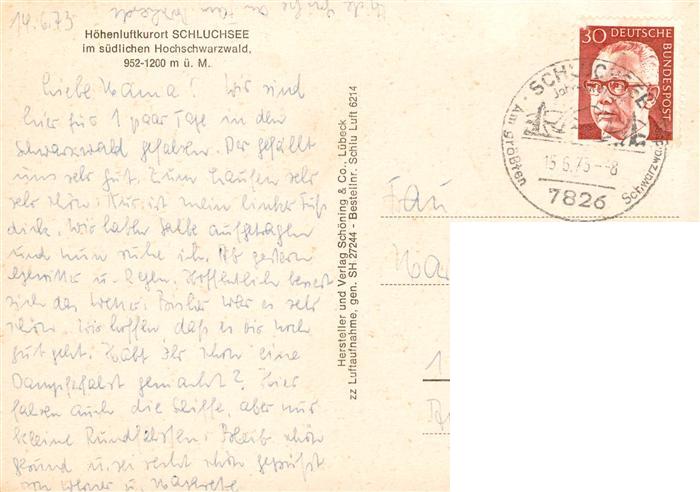 14.6.73
Höhenluftkurort SCHLUCHSEE
im südlichen Hochschwarzwald,
952-1200 m ü. M.
Liebe Mama! Wir sind
hier für 1 paar Tage in den
Schwarzwald gefahren. Der gefällt
uns sehr gut. Zum Laufen sehr
sehr schön. Nur ist mein linker Fuß
dick. Wir haben Salbe aufgetragen
und nun ruhe ich. Ab gestern
Gewitter u. Regen. Hoffentlich bessert
sich das Wetter. Bisher war es sehr
schön. Wir hoffen daß es Dir noch
gut geht. Habt Ihr schon eine
Dampferfahrt gemacht? Hier
fahren auch die Schiffe, aber nur
kleine Rundfahrten. Bleib schön
gesund u. sei recht schön gegrüßt
von Werner u.
Hersteller und Verlag Schöning & Co., Lübeck
zz Luftaufnahme, gen. SH 27244 - Bestellnr. Schlu Luft 6214
30 DEUTSCHE
BUNDESPOST
SCHLUCHSEE
Am größten
Schwarzwa
15.6.73--8
7826
Frau
1